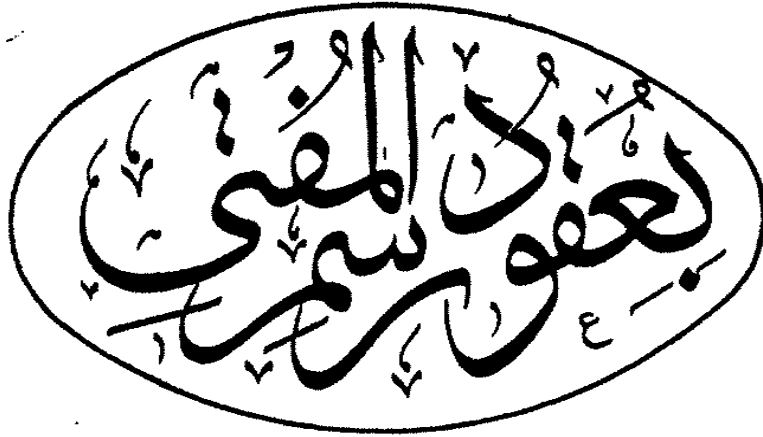 بعقود رسم المفتى